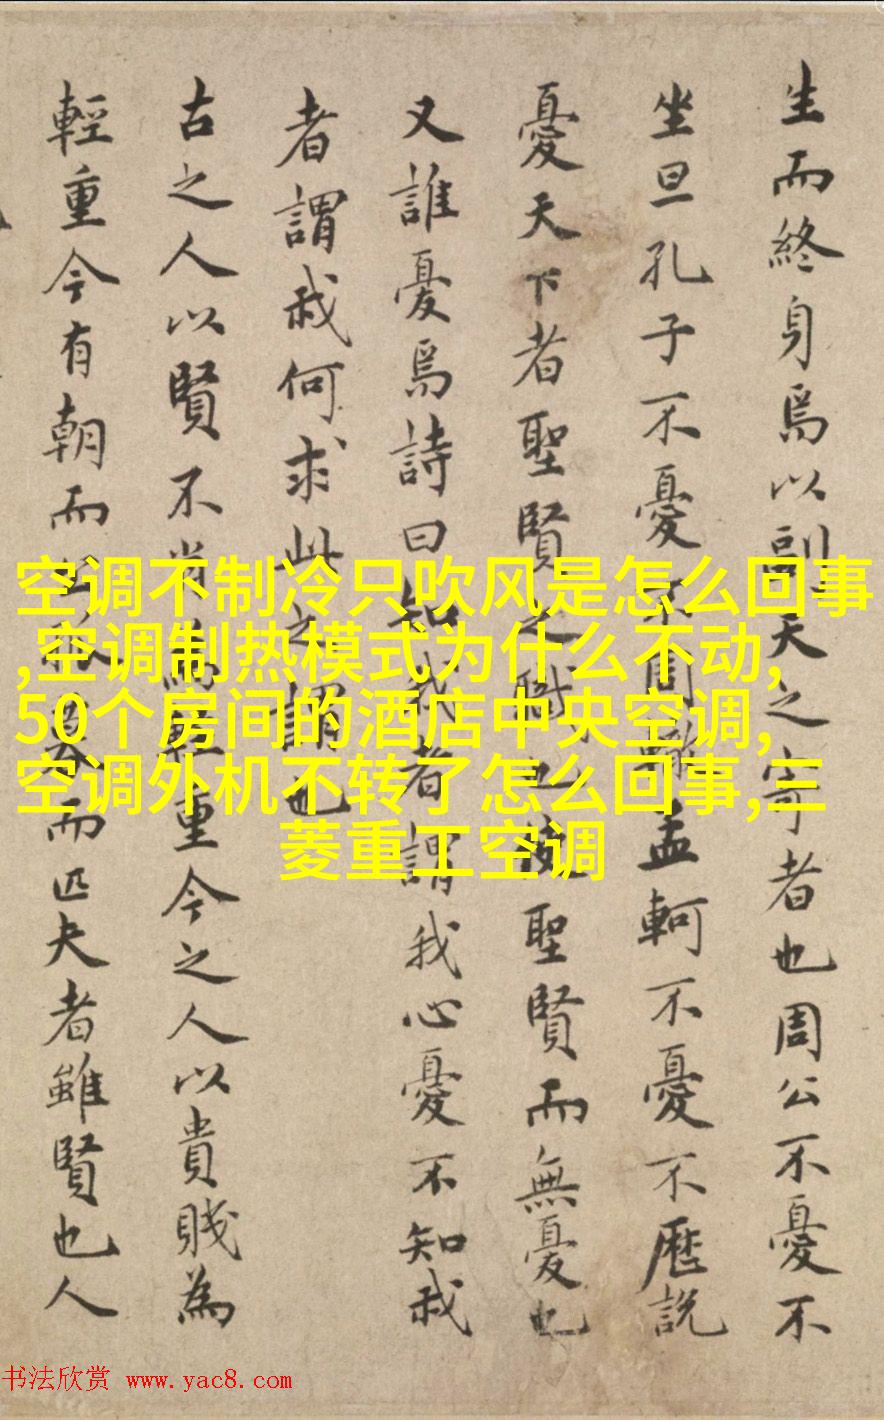 生而終身焉以副天之寄者也周公不憂不
坐旦孔子不憂不周轍孟軻不憂不歷說
憂天下者聖賢之職也使聖賢而無憂也
又誰憂焉詩曰知我者謂我心憂不知我
者謂我何求此之謂也
古之人以賢不肖為輕重今之人以貴賤為
輕重今有朝而暮而匹夫者雖賢也人
空调不制冷只吹风是怎么回事
,空调制热模式为什么不动,
50个房间的酒店中央空调,
空调外机不转了怎么回事,三
菱重工空调
书法欣赏 www.yac8.com